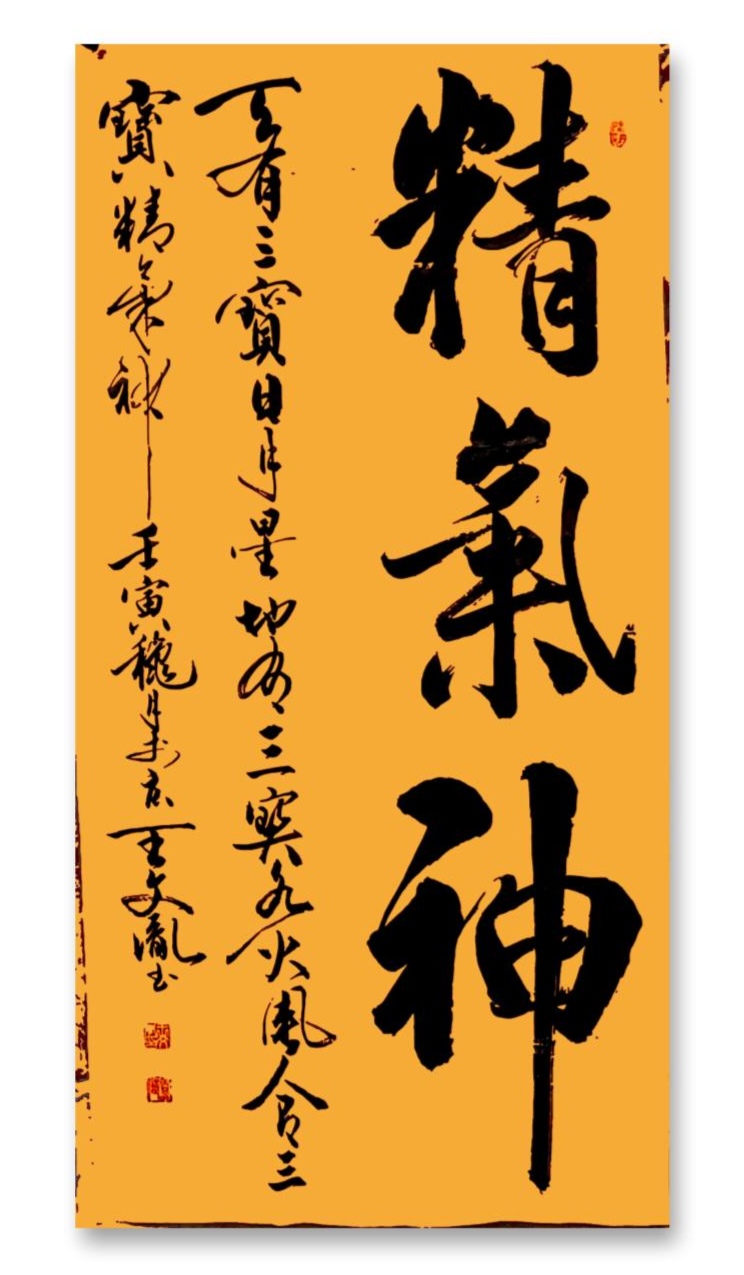 精氣神
天有三寶日月星地有三寶水火風人有三
寶精氣神壬寅穐月京王文胤书